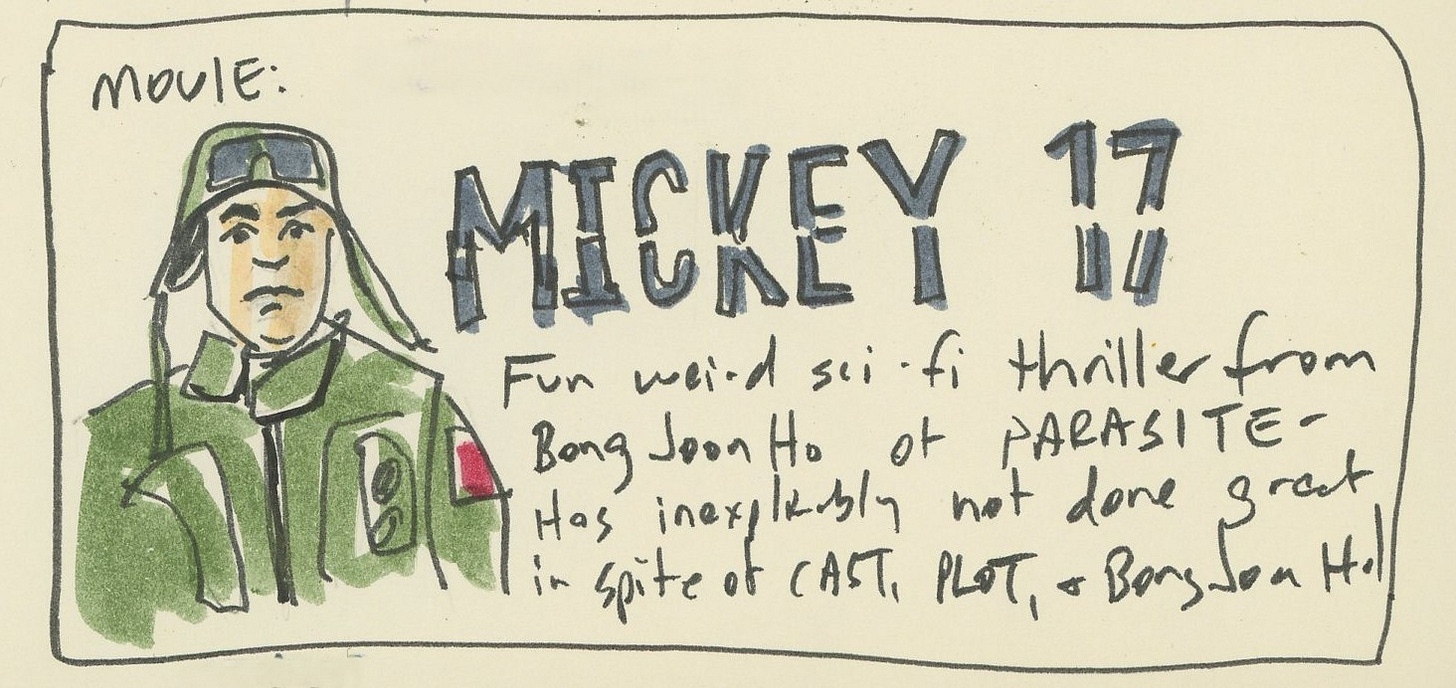 MOVIE:
MICKEY 17
Fun weird sci-fi thriller from
Bong Joon Ho of PARASITE-
Has inexplicably not done great
in spite of CAST, PLOT, & Bong Joon Ho!